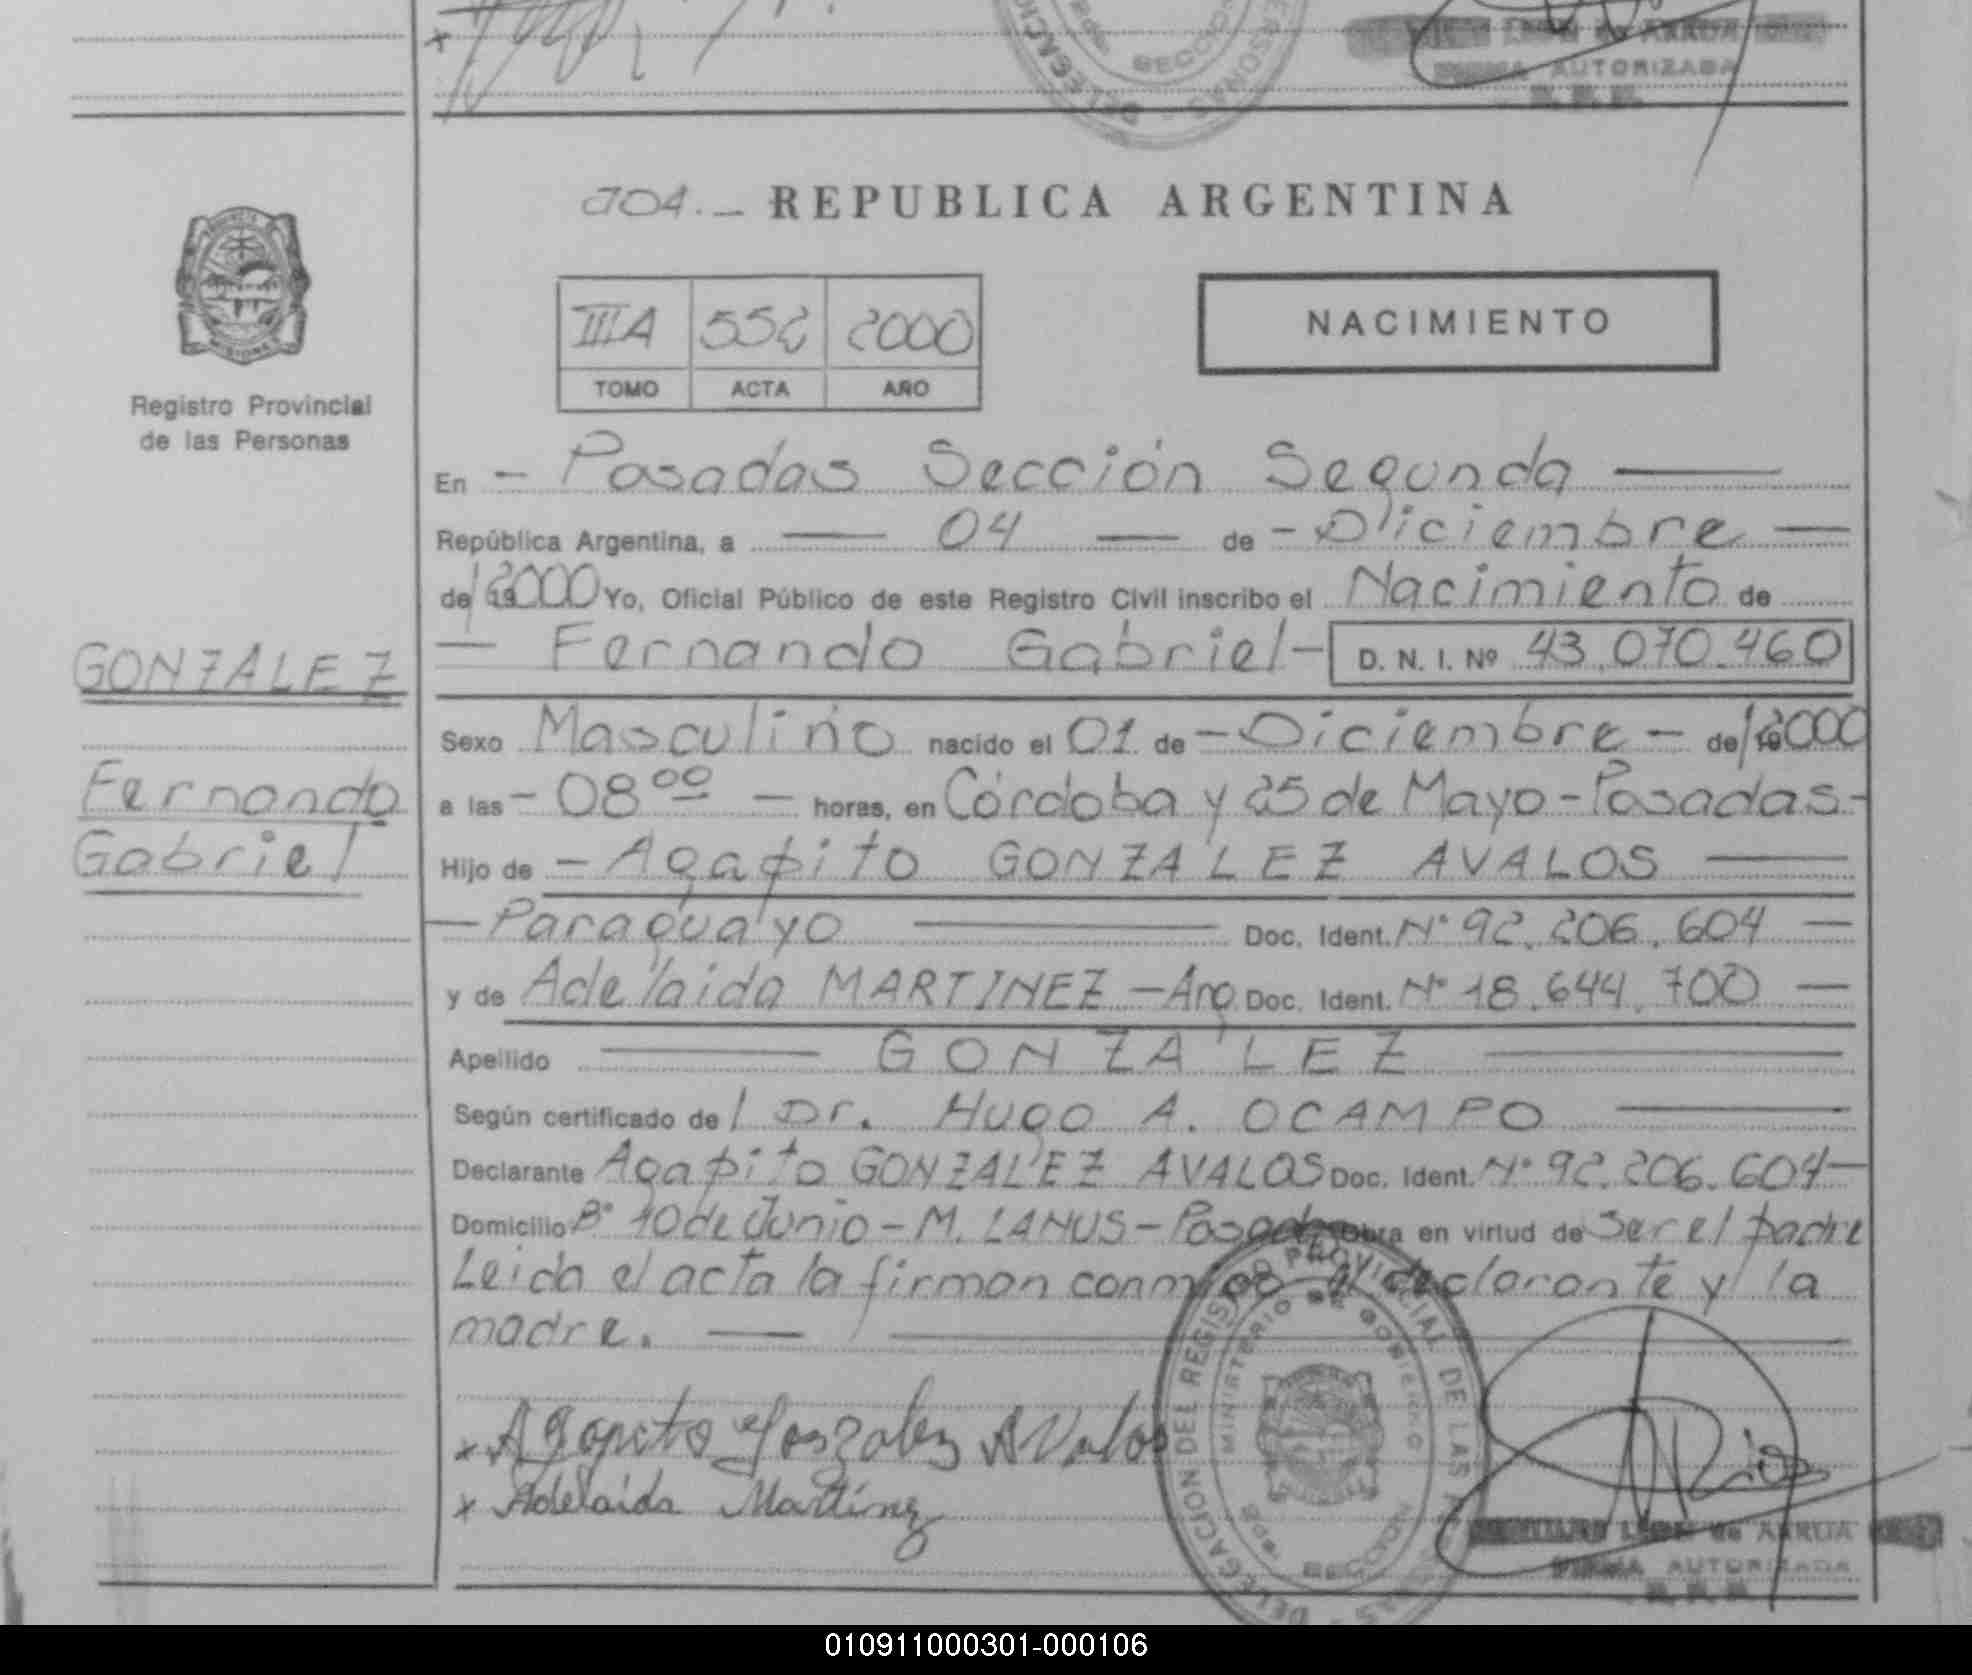 SECCION
DELEGACION
AUTORIZADA
704.- REPUBLICA ARGENTINA
IIIA 552 2000
TOMO ACTA AÑO
NACIMIENTO
MISIONES
Registro Provincial
de las Personas
En - Posadas Sección Segunda
República Argentina, a 04 de - Diciembre
de 19 2000 Yo, Oficial Público de este Registro Civil inscribo el Nacimiento de
GONZALEZ
Fernando Gabriel - D. N. I. Nº 43.070.460
Sexo Masculino nacido el 01 de - Diciembre - de 19 2000
Fernando
a las - 08 00 - horas, en Córdoba y 25 de Mayo - Posadas -
Gabriel
Hijo de - Agapito GONZÁLEZ AVALOS
Paraguayo Doc. Ident. Nº 92.206.604
y de Adelaida MARTINEZ - Arg. Doc. Ident. Nº 18.644.700
Apellido GONZÁLEZ
Según certificado de Dr. Hugo A. OCAMPO
Declarante Agapito GONZALEZ AVALOS Doc. Ident. Nº 92.206.604
Domicilio Bº 10 de Junio - M. LANUS - Posadas Obra en virtud de ser el padre
Leida el acta la firman conmigo el declarante y la
madre.
Agapito Gonzalez Avalos
Adelaida Martinez
DELEGACION DEL REGISTRO PROVINCIAL DE LAS
MINISTERIO DE GOBIERNO
2da SECCION
Rios
LEON de ARRUA
FIRMA AUTORIZADA
010911000301-000106